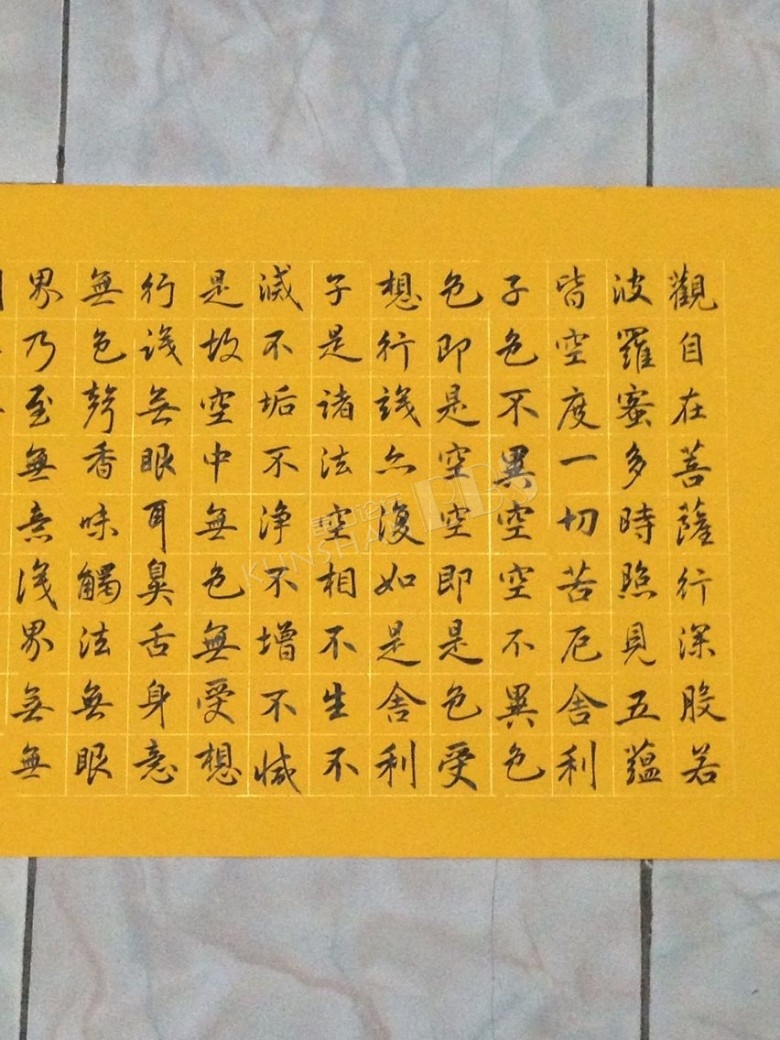 觀自在菩薩行深般若
波羅蜜多時照見五蘊
皆空度一切苦厄舍利
子色不異空空不異色
色即是空空即是色受
想行識亦復如是舍利
子是諸法空相不生不
滅不垢不淨不增不減
是故空中無色無受想
行識無眼耳鼻舌身意
無色聲香味觸法無眼
界乃至無意識界無無
KUNSHAN BBS